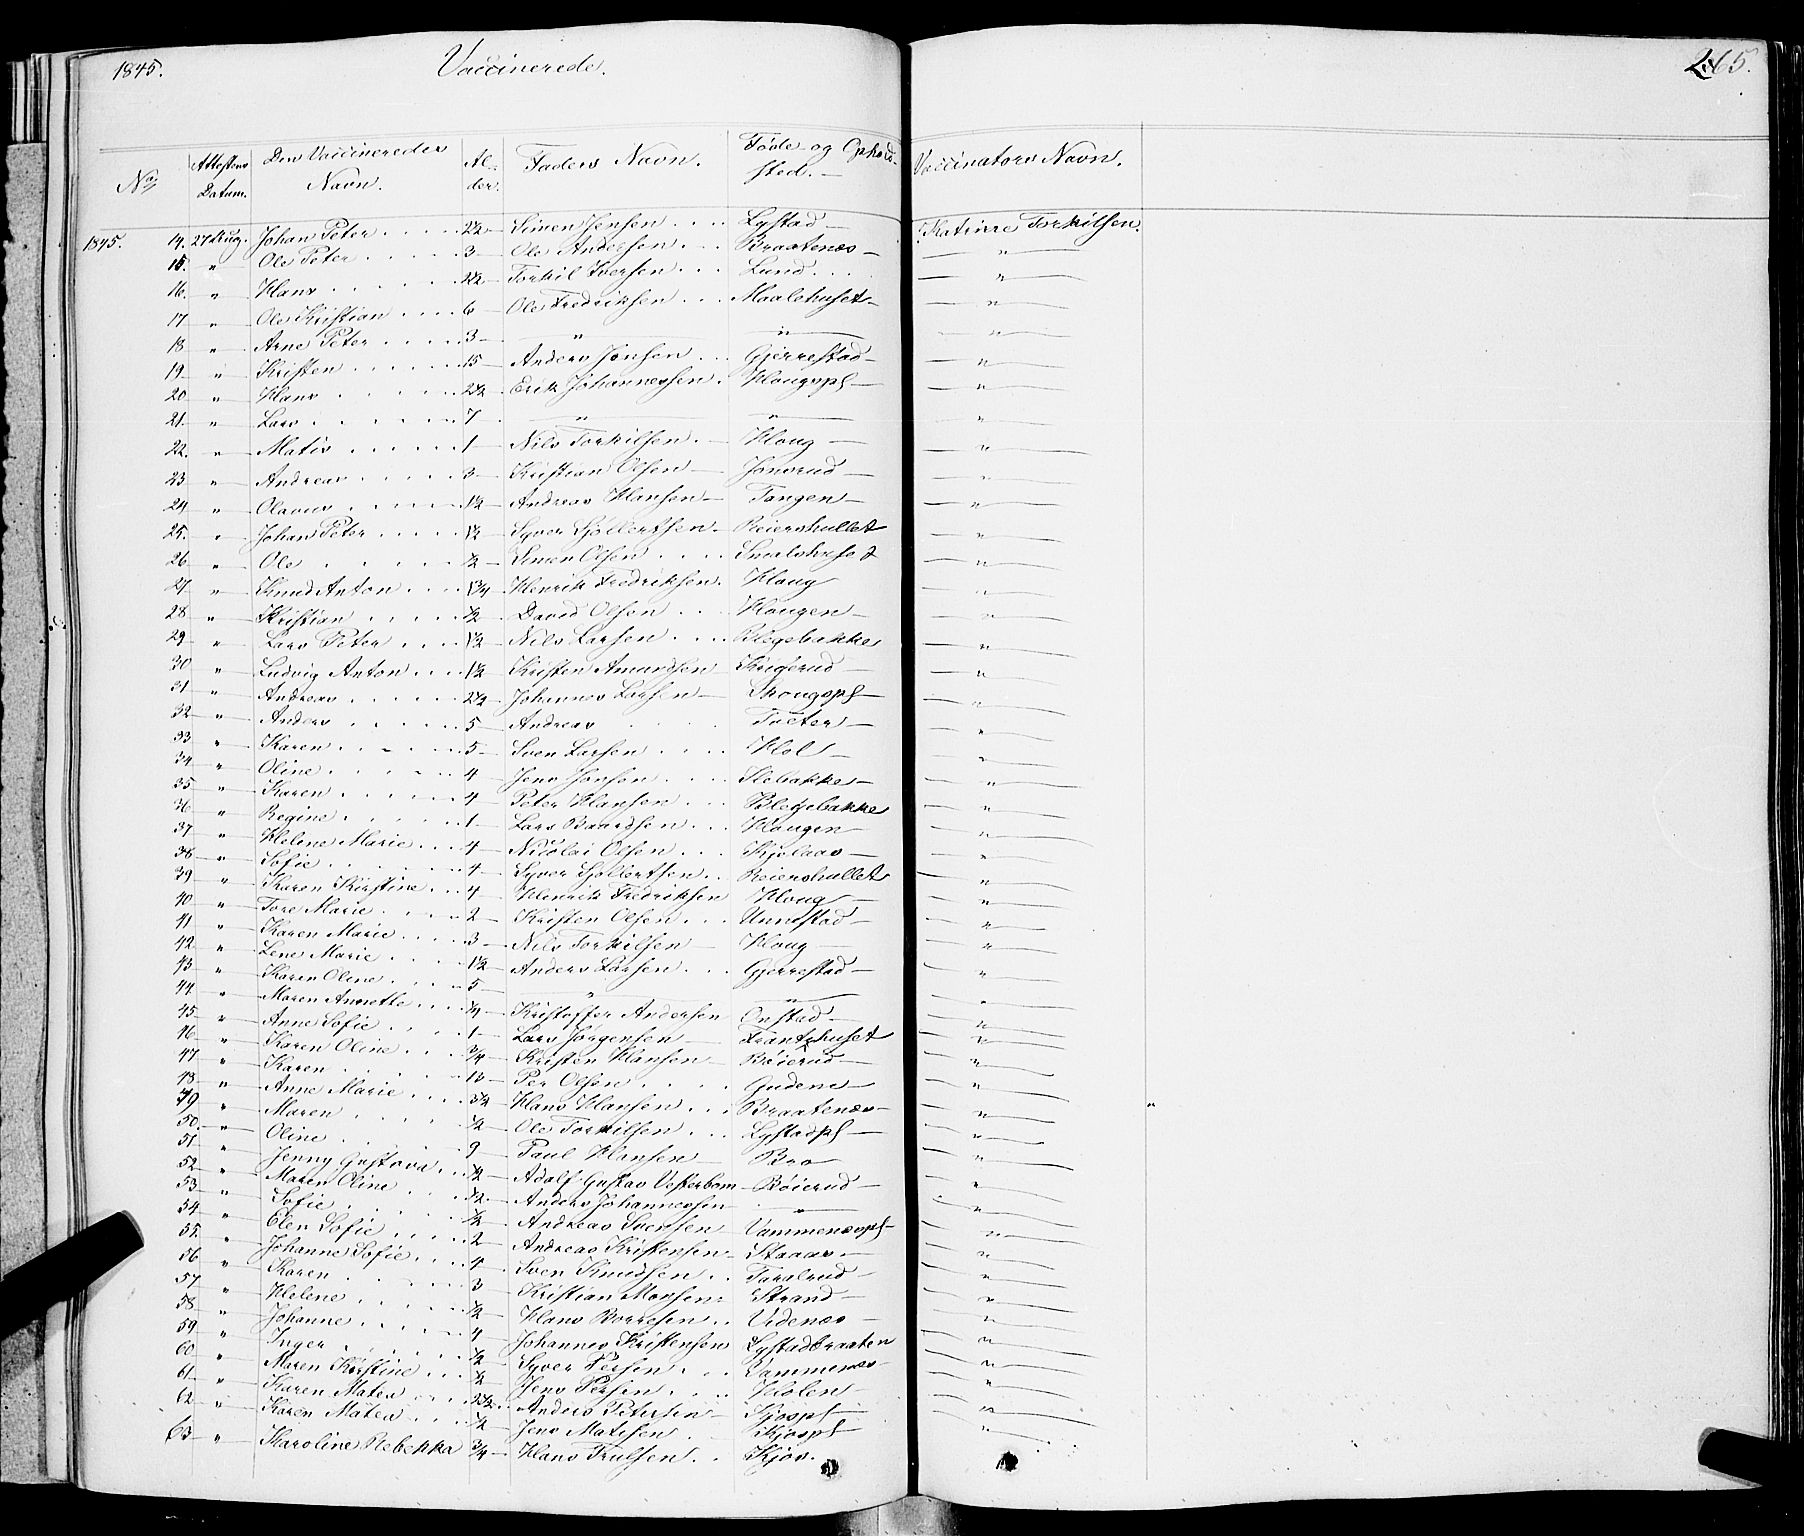 1845. Vaccinerede. 265.
No Attestens Datum. Den Vaccineredes Navn. Alder. Faders Navn. Føde og Opholdsted. Vaccinators Navn.
1845. 14. 27 Aug. Johan Peter 2½ Simen Jensen Lystad Katinre Torkilsen.
15. " Ole Peter 3 Ole Andersen Braatenæs "
16. " Hans 2½ Torkil Iversen Lund "
17 " Ole Kristian 6 Ole Fredriksen Maalehuset "
18 " Arne Peter 3 " " "
19. " Kristen 15 Anders Jensen Gjerrestad "
20 " Hans 2½ Erik Johannessen Hougspl "
21. " Lars 7 " " "
22. " Matis 1 Nils Torkilsen Houg "
23 " Andreas 3 Kristian Olsen Jonsrud "
24 " Olavus 1½ Andreas Hansen Tangen "
25. " Johan Peter 1½ Syver Gollertsen Reiershullet "
26 " Ole ½ Simen Olsen "
27 " Knud Anton 1¾ Henrik Fredriksen Houg "
28 " Kristian ½ David Olsen Hougen "
29 " Lars Peter 1½ Nils Larsen Blegebakke "
30 " Ludvig Anton 1½ Kristen Amundsen Krigsrud "
31 " Andreas 2½ Johannes Larsen Skougspl "
32 " Anders 5 Andreas Tveter "
33 " Karen 5 Sven Larsen Hol "
34 " Oline 4 Jens Jonsen Slebakke "
35 " Karen 4 Peter Hansen Blegebakke "
36 " Regine 1 Lars Baardsen Hougen "
37 " Helene Marie 4 Nicolai Olsen Kjolaas "
38 " Sofie 4 Syver Gollertsen Reiershullet "
39 " Karen Kirstine 4 Henrik Fredriksen Houg "
40 " Tore Marie 2 Kristen Olsen Unnestad "
41 " Karen Marie 3 Nils Torkilsen Houg "
42 " Lene Marie 1½ Anders Larsen Gjerrestad "
43 " Karen Oline 5 " " "
44 " Maren Annette ¼ Kristoffer Andersen Onstad "
45 " Anne Sofie 1 Lars Jørgensen Frantzhuset "
46 " Karen Oline ¾ Kristen Hansen Bøierud "
47 " Karen 13 Per Olsen Gudene "
48 " Anne Marie 3½ Hans Hansen Braatenæs "
49 " Maren ½ Ole Torkilsen Lystadpl "
50. " Oline 9 Paul Hansen Bro "
51 " Jenny Gustava ½ Adolf Gustav Vesterbom Bøierud "
52 " Maren Oline ½ Anders Johannessen " "
53 " Sofie ½ Andreas Svensen Vammenæspl "
54 " Elen Sofie 2 Andreas Kristensen Staaas "
55. " Johanne Sofie 4 Sven Knudsen Taralrud "
56 " Karen 3 Kristian Monsen Strand "
57 " Helene ½ Hans Borresen Videnæs "
58 " Johanne 4 Johannes Kristensen Lystadbraaten "
59 " Inger ½ Syver Persen Vammenæs "
60 " Maren Kirstine ½ Jens Persen Holen "
61 " Karen Matea 2½ Anders Petersen Kjospl "
62 " Karen Matea ½ Jens Matisen Kjospl "
63 " Karoline Rebekka ¾ Hans Trulsen Kjos.